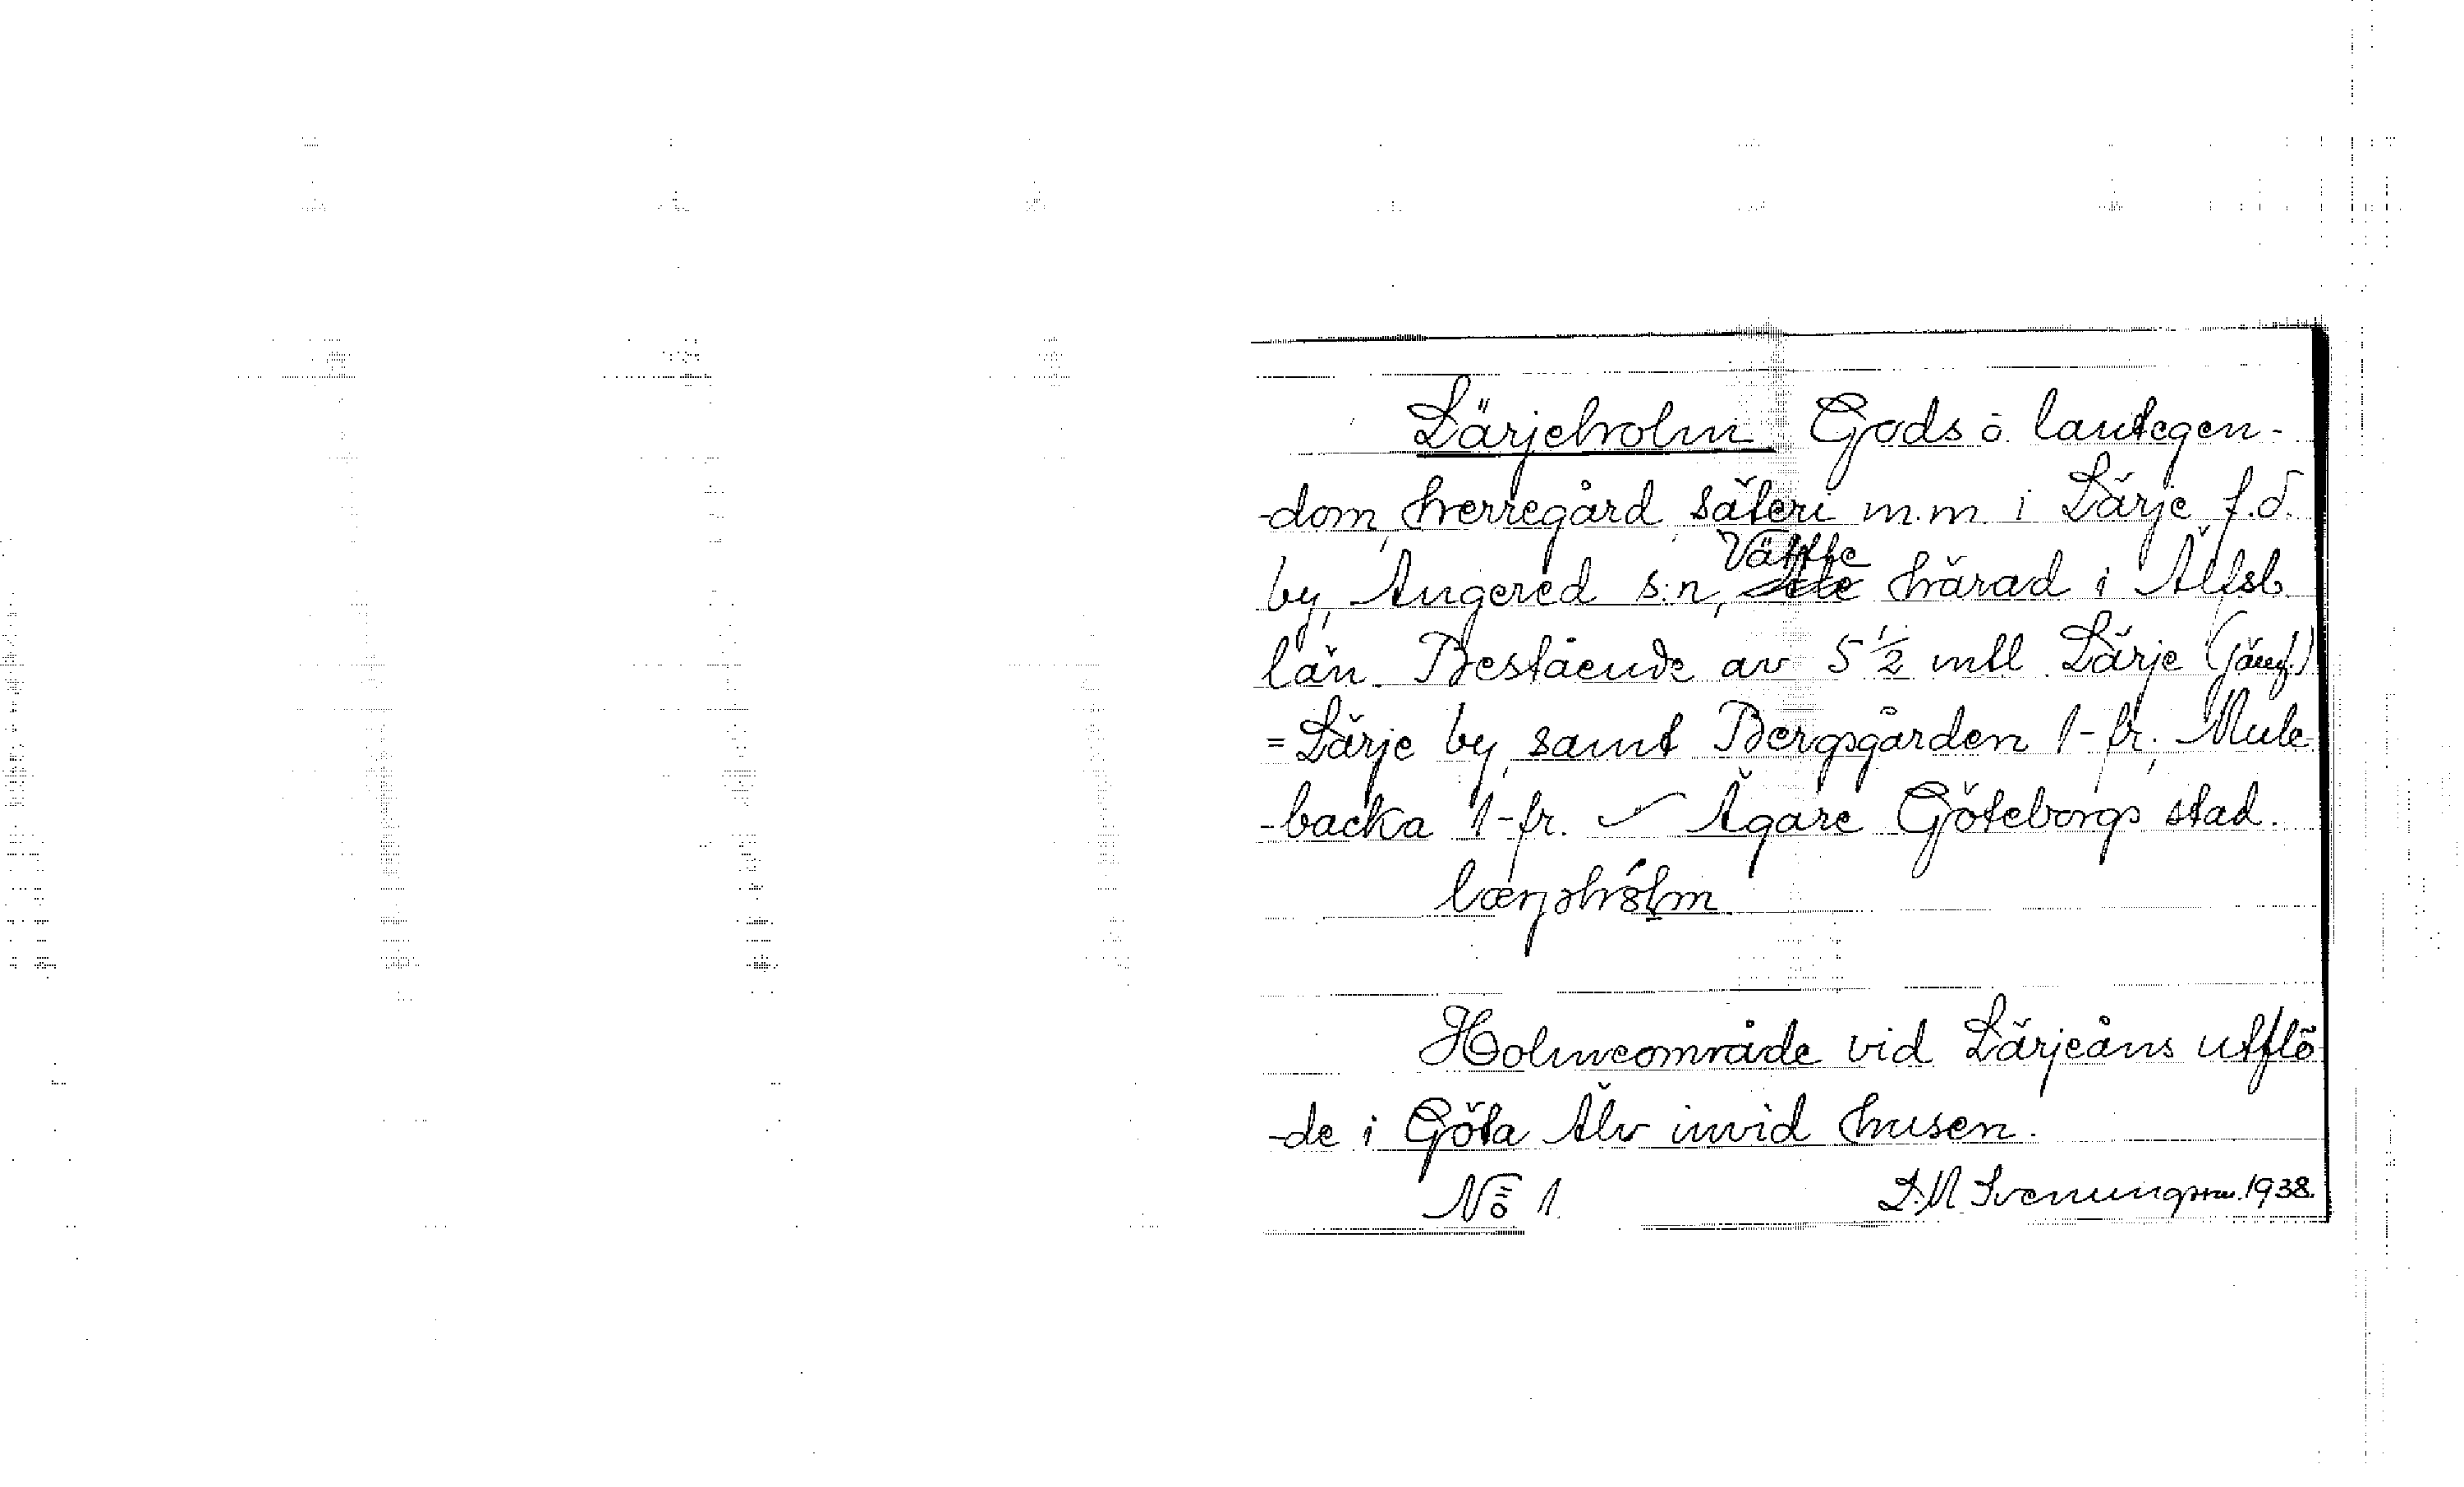 Lärjeholm Gods o. lantegen-
-dom, herregård, säteri m.m. i Lärje f.d.
by, Angered s:n, Vättle härad i Älfsb.
län. Bestående av 5 1/2 mtl Lärje (jämf.)
=Lärje by, samt Bergsgården 1-fr, Mule-
-backa 1-fr. Ägare Göteborgs stad.
lærjəhólm
Holmeområde vid Lärjeåns utflö-
-de i Göta Älv invid husen.
No 1. D.A. Svenungsson. 1938.